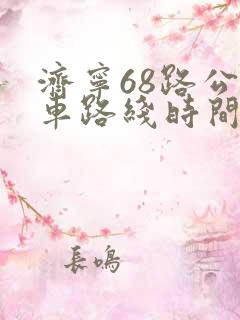 濟寧68路公
車路綫時間
長鳴